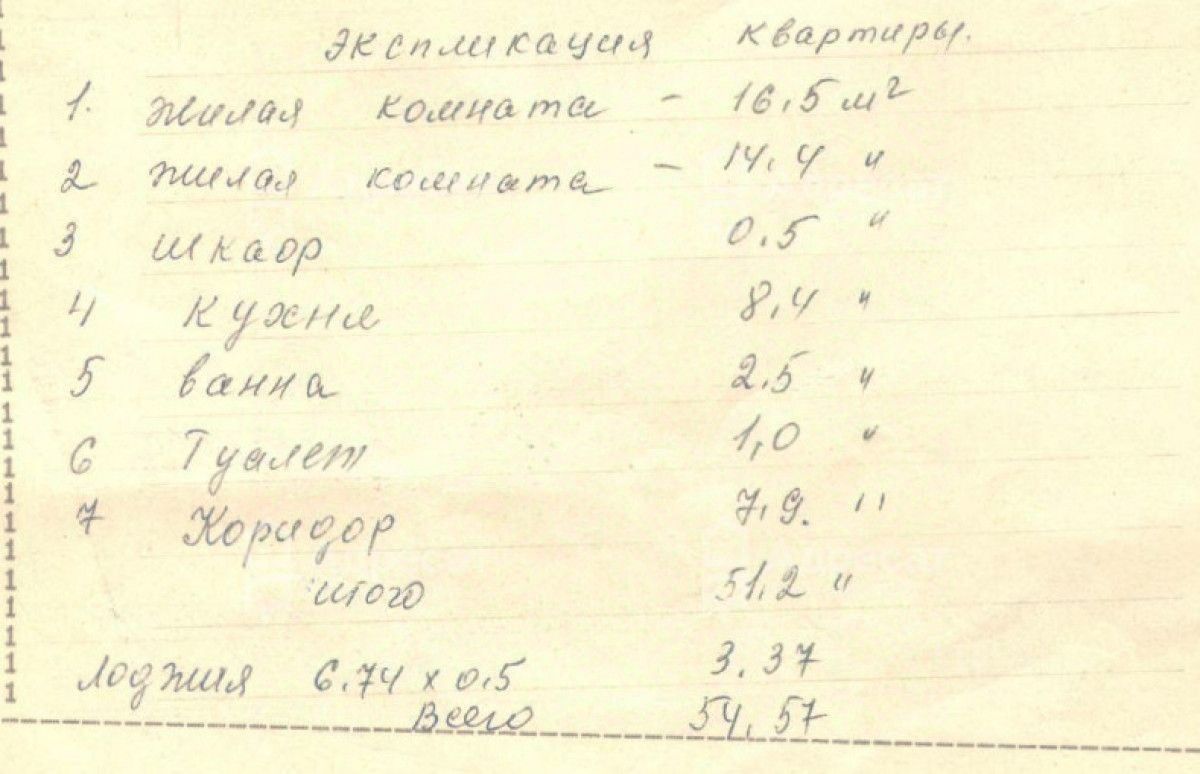 экспликация квартиры.
1. жилая комната - 16.5 м²
2 жилая комната - 14.4 "
3 шкаф 0.5 "
4 кухня 8.4 "
5 ванна 2.5 "
6 Туалет 1,0 "
7 Коридор 7.9. "
итого 51.2 "
Лоджия 6.74 х 0.5 3.37
Всего 54.57